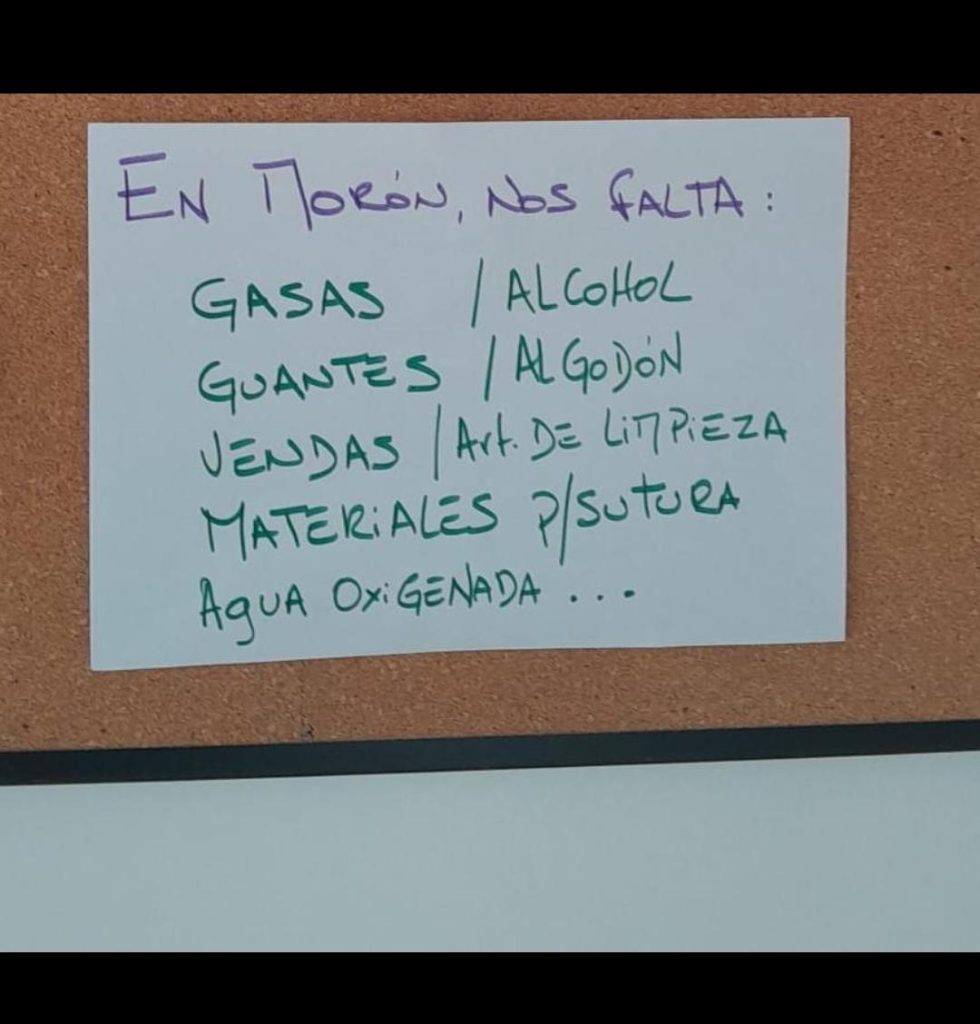 EN MORÓN, NOS FALTA:
GASAS / ALCOHOL
GUANTES / ALGODÓN
VENDAS / Art. DE LIMPIEZA
MATERIALES P/SUTURA
AGUA OXIGENADA ...